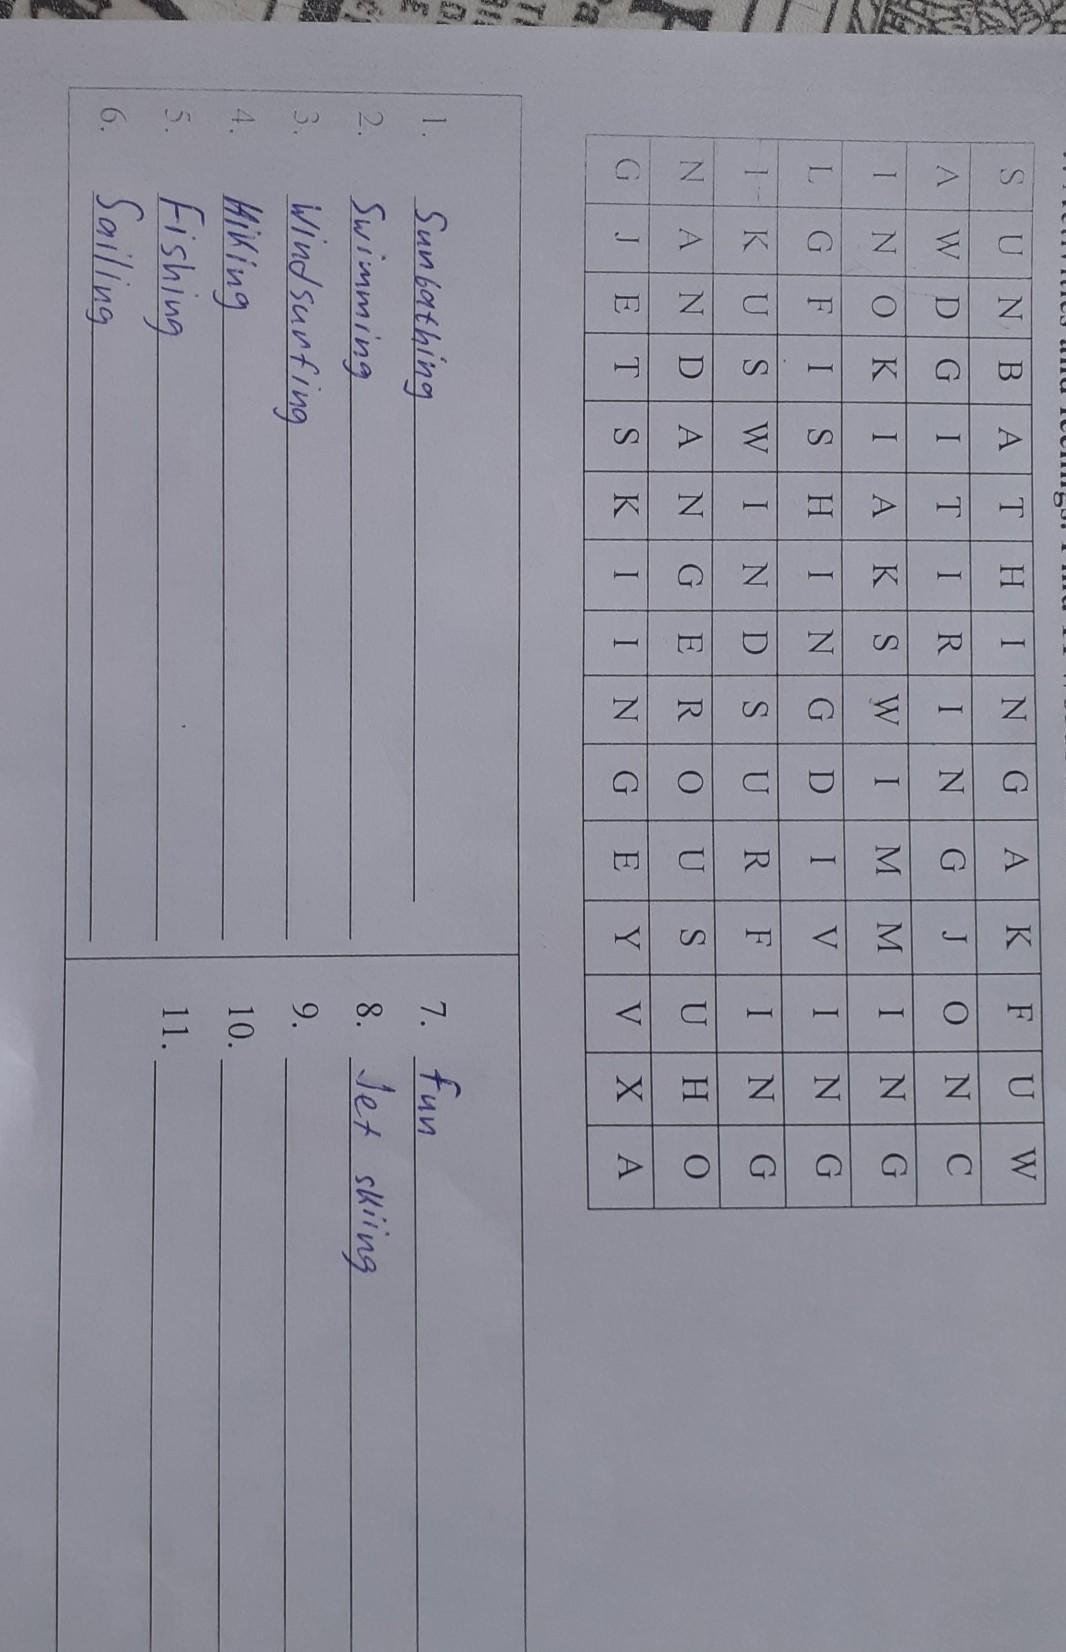 and feelings.
S U N B A T H I N G A K F U W
A W D G I T I R I N G J O N C
I N O K I A K S W I M M I N G
L G F I S H I N G D I V I N G
I K U S W I N D S U R F I N G
N A N D A N G E R O U S U H O
G J E T S K I I N G E Y V X A
1. Sunbathing
2. Swimming
3. Windsurfing
4. Hiking
5. Fishing
6. Sailing
7. fun
8. Jet skiing
9.
10.
11.